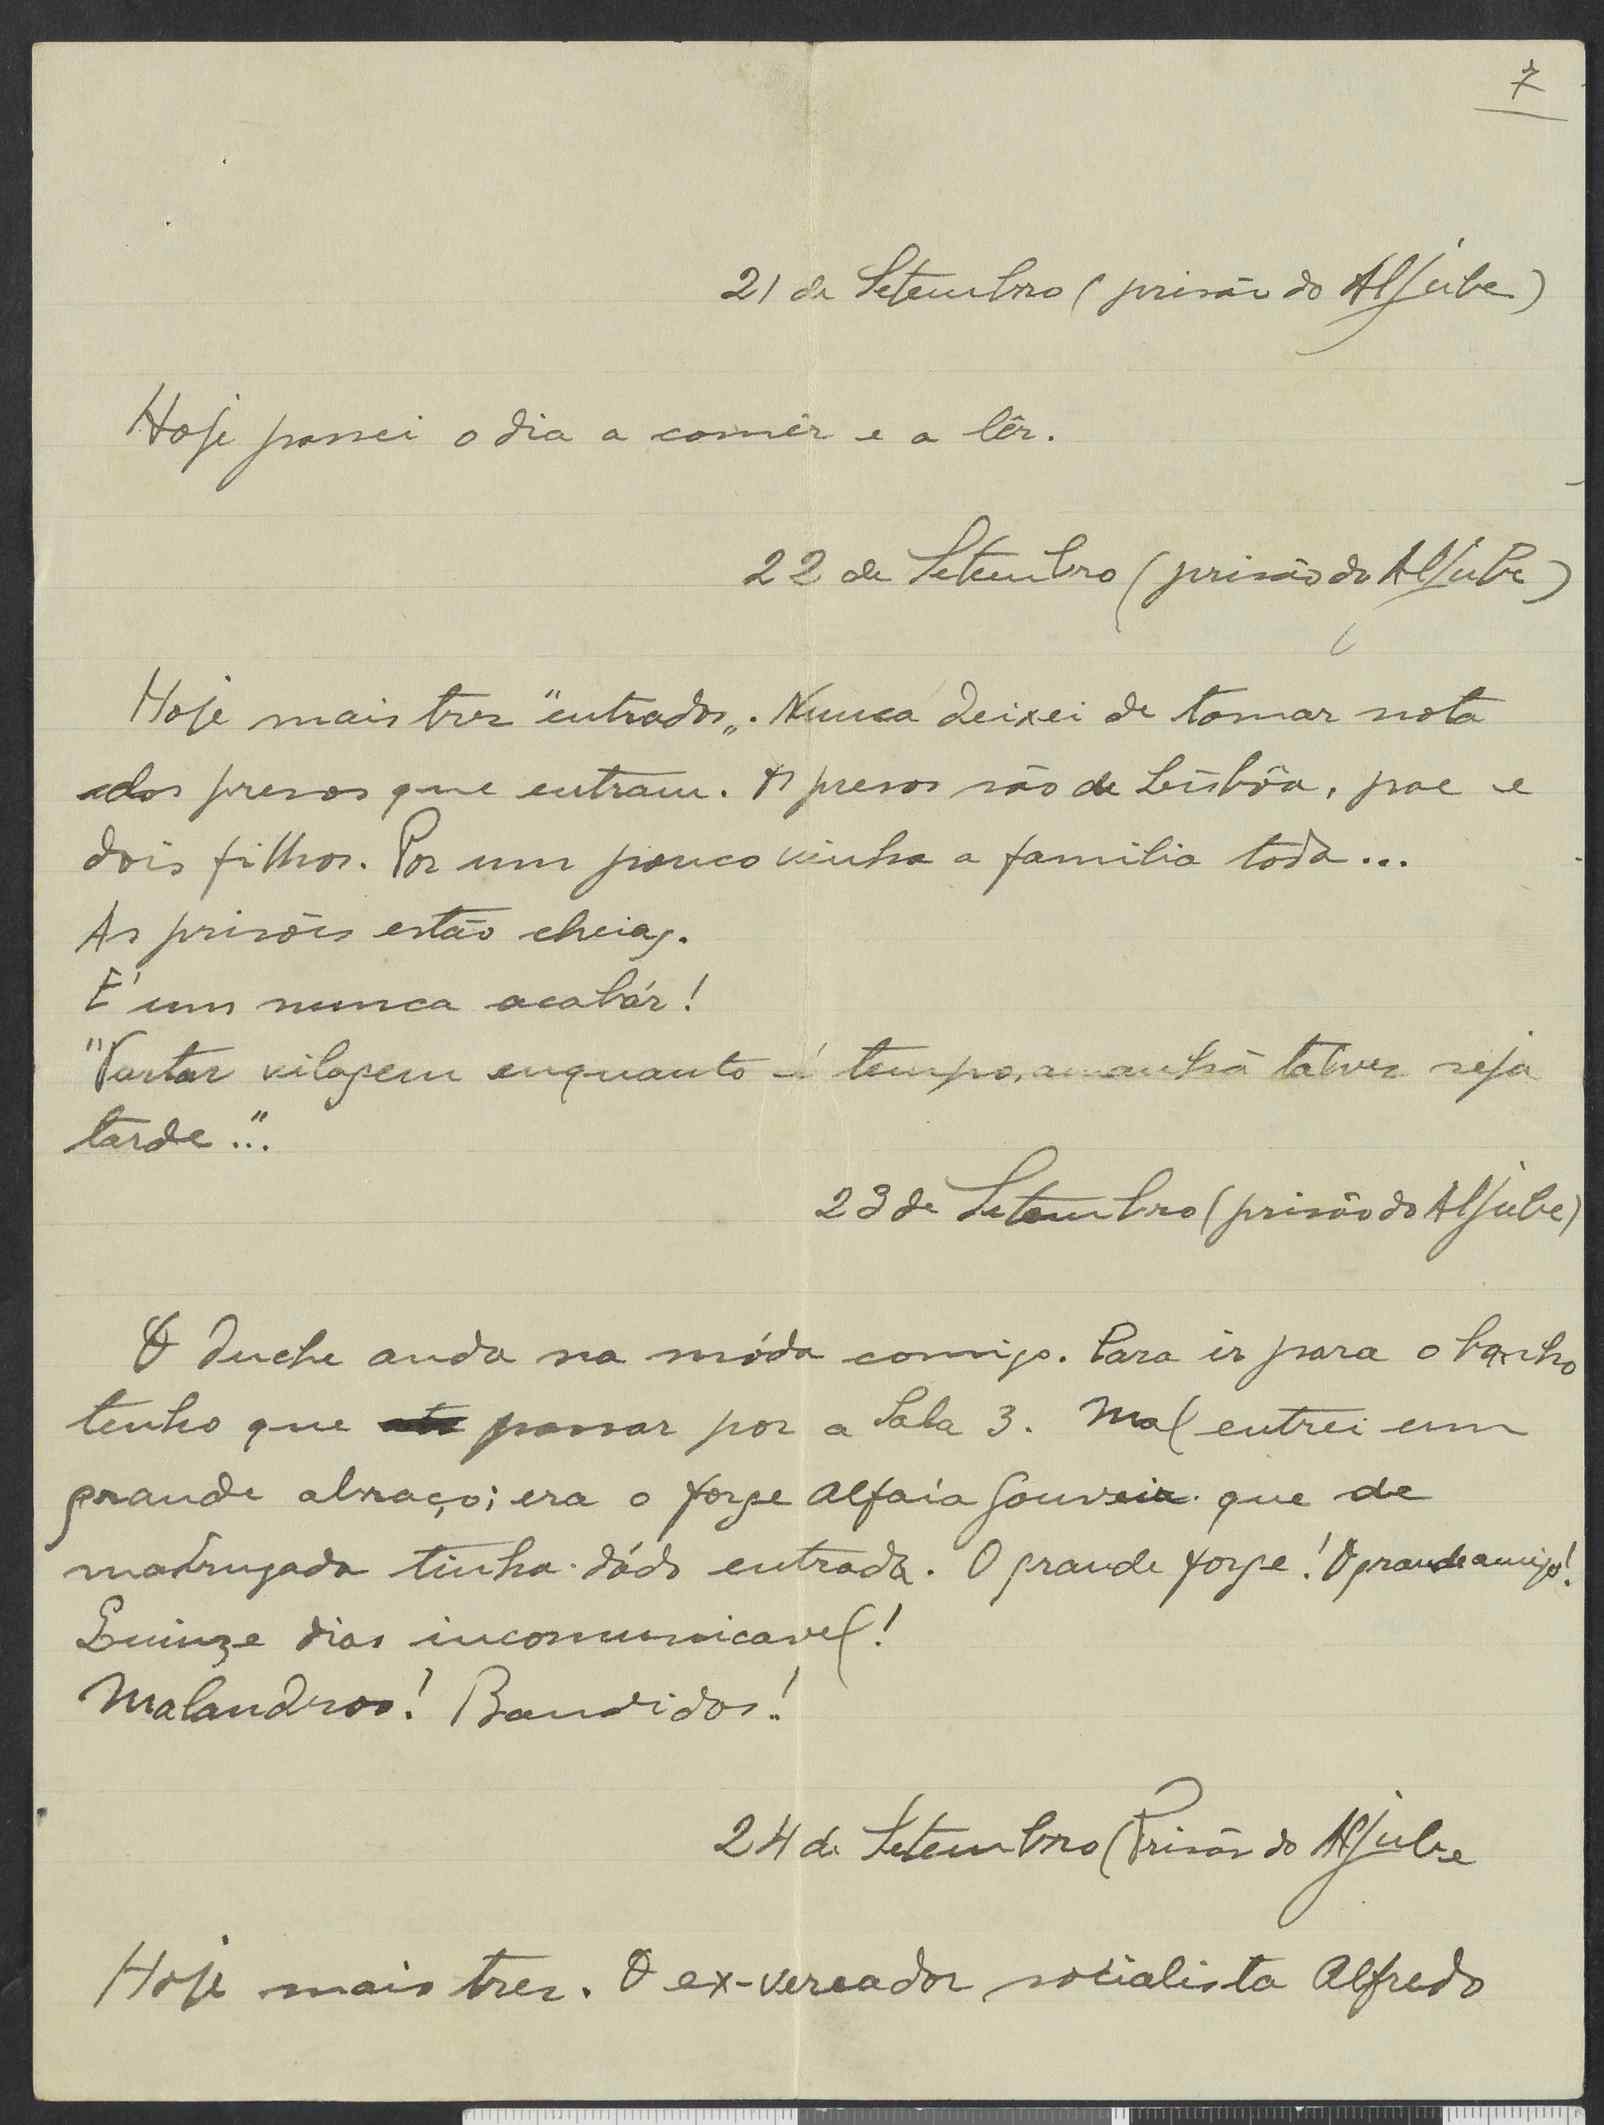 7
21 de Setembro (prisão do Aljube)
Hoje passei o dia a comêr e a lêr.
22 de Setembro (prisão do Aljube)
Hoje mais trez "entrados". Nunca deixei de tomar nota
dos presos que entram. Os presos são de Lisbôa, pae e
dois filhos. Por um pouco vinha a familia toda...
As prisões estão cheias.
É um nunca acabár!
"Fartar vilagem enquanto é tempo, amanhã talvez seja
tarde..."
23 de Setembro (prisão do Aljube)
O duche anda na móda comigo. Para ir para o banho
tenho que passar por a Sala 3. Mal entrei um
grande abraço; era o Jorge Alfaia Gouveia que de
madrugada tinha dádo entrada. O grande Jorge! O grande amigo!
Quinze dias incomunicavel!
Malandros! Bandidos!
24 de Setembro (Prisão do Aljube
Hoje mais trez. O ex-vereador socialista Alfredo